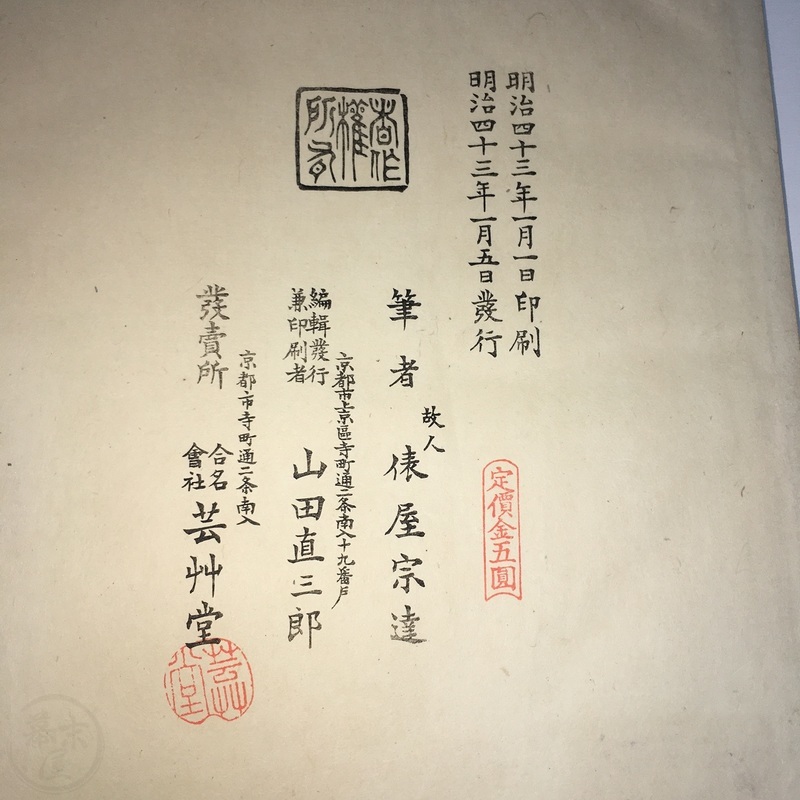 明治四十三年一月一日印刷
明治四十三年一月五日發行
定價金五圓
著作
權
所有
故人
筆者 俵屋宗達
京都市上京區寺町通二条南入十九番戸
編輯發行
兼印刷者
山田直三郎
京都市寺町通二条南入
發賣所
合名
會社
芸艸堂
芸艸
堂
幕末
屋